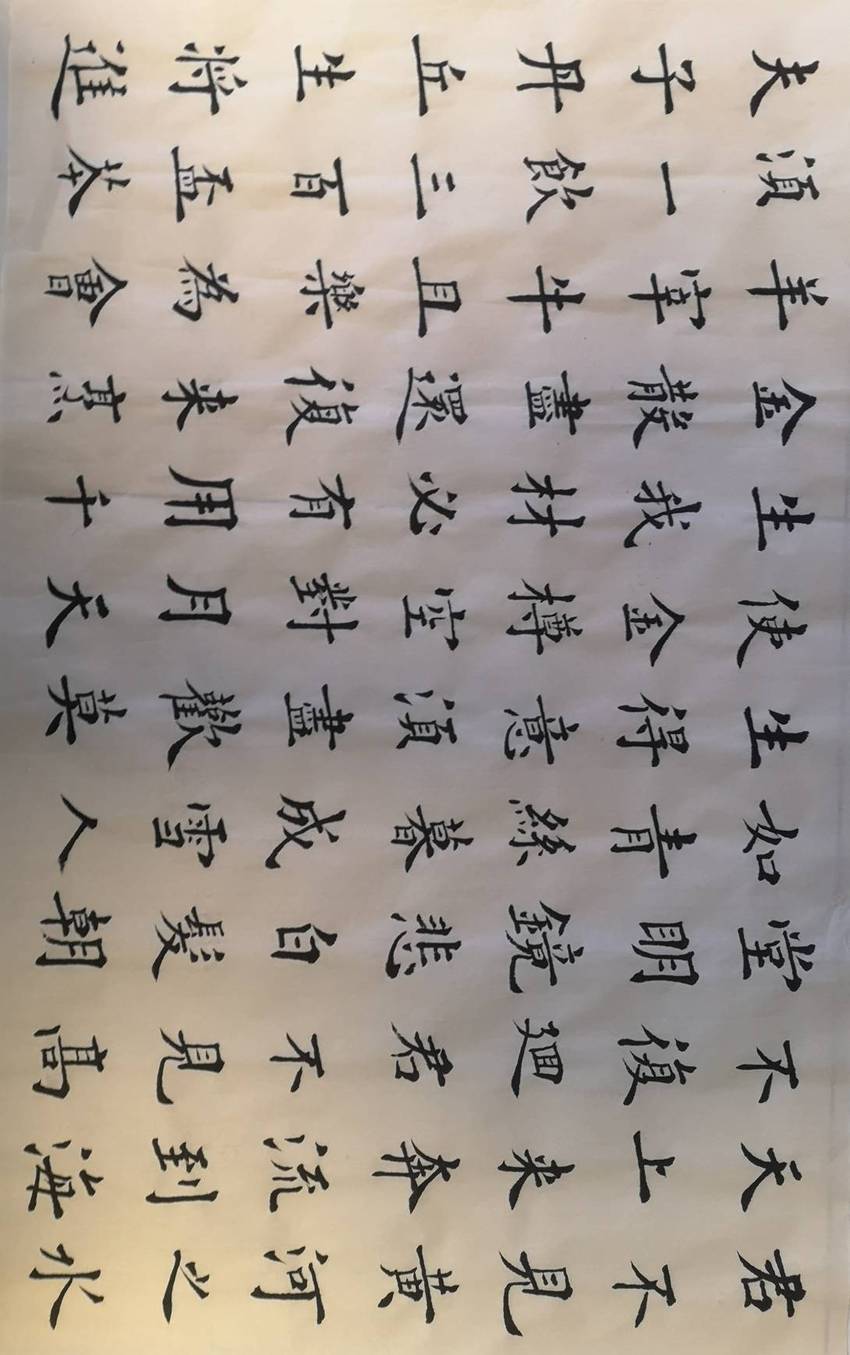 君不見黃河之水
天上來奔流到海
不復廻君不見高
堂明鏡悲白髮朝
如青絲暮成雪人
生得意須盡歡莫
使金樽空對月天
生我材必有用千
金散盡還復來烹
羊宰牛且樂為會
須一飲三百盃岑
夫子丹丘生將進